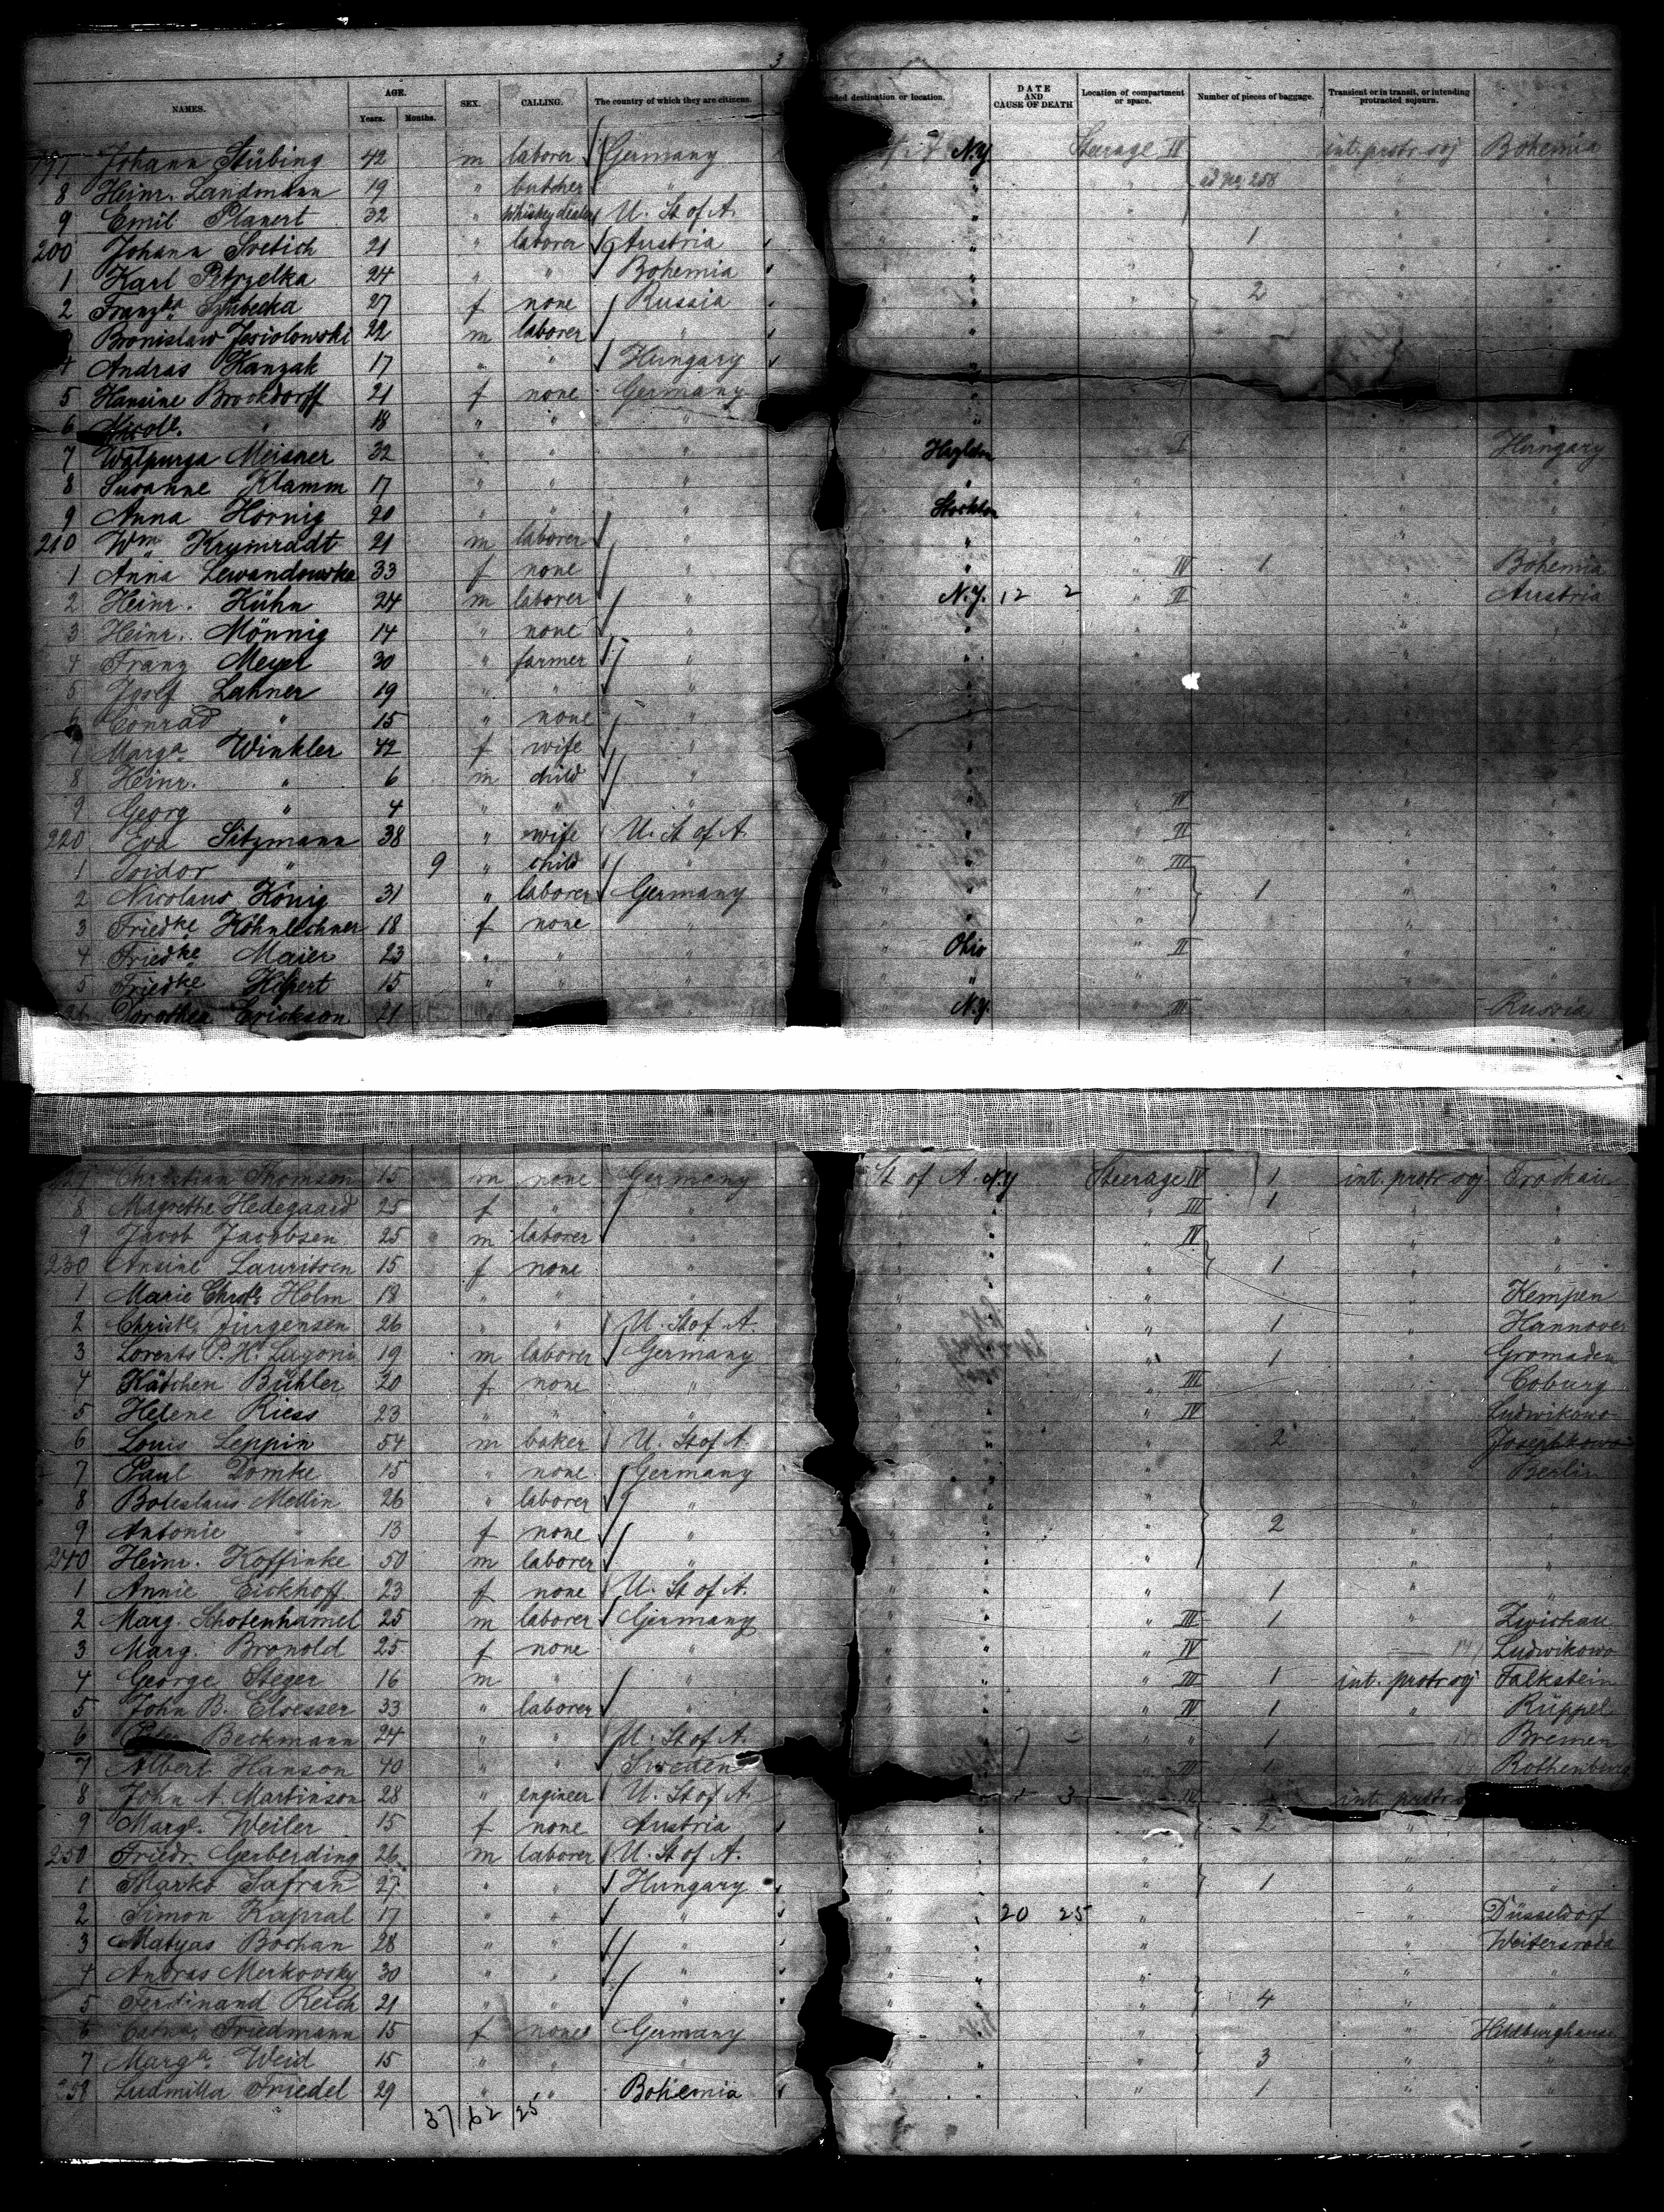 3
NAMES. AGE. Years. Months. SEX. CALLING. The country of which they are citizens. destination or location. DATE AND CAUSE OF DEATH Location of compartment or space. Number of pieces of baggage. Transient or in transit, or intending protracted sojourn.
197 Johann Stübing 42 m laborer Germany N.Y Steerage II int. protr soj Bohemia
8 Heinr. Landmann 19 " butcher " " " "
9 Emil Planert 32 " whiskey dealer U. St of A. " " " "
200 Johann Svetich 21 " laborer Austria " " 1 " "
1 Karl Petrzelka 24 " " Bohemia " " " "
2 Franzka 27 f none Russia " " 2 " "
Bronislaw Jesiolowski 22 m laborer " " " " "
4 Andras Kanzak 17 " " Hungary "
5 Hansine Brockdorff 21 f none Germany "
6 " 18 " " " " " "
7 Walpurga Meisner 32 " " " Hazleton I " Hungary
8 Susanne Klamm 17 " " " " " " "
9 Anna Hornig 20 " " " Stockton " " "
210 Wm Krumradt 21 m laborer " " " " "
1 Anna Lewandowska 33 f none " " " IV 1 " Bohemia
2 Heinr. Kühn 24 m laborer " N.Y. 12 2 " II " Austria
3 Heinr. Mönnig 14 " none " " " " "
4 Franz Meyer 30 " farmer " " " " "
5 Josef Lahner 19 " " " " " " "
6 Conrad " 15 " none " " " " "
7 Marga Winkler 42 f wife " " " " "
8 Heinr. " 6 m child " " " " "
9 Georg " 4 " " " " " IV " "
220 Eva Sitzmann 38 " wife U. St of A. " " II " "
1 Isidor " 9 " child " " " III " "
2 Nicolaus König 31 " laborer Germany " " 1 " "
3 Friedke Köhnlechner 18 f none " " " " "
4 Friedke Maier 23 " " " Ohio " II " "
5 Friedke 15 " " " " " " "
Dorothea Erickson 21 " N.Y. " III " Russia
Christian Thomson 15 m none Germany St of A. N.Y Steerage IV 1 int. protr soj
8 Magrethe Hedegaard 25 f " " " " III 1 " "
9 Jacob Jacobsen 25 m laborer " " " IV " "
230 Ansine Lauritsen 15 f none " " " 1 " "
1 Marie Chrstr. Holm 18 " " " " " " Kempen
2 Christe Jürgensen 26 " " U. St of A. " " 1 " Hannover
3 Lorents P. H. Lagoni 19 m laborer Germany " " 1 " Gromaden
4 Kätchen Bühler 20 f none " " " III " Coburg
5 Helene Riess 23 " " " " " IV " Ludwikowo
6 Louis Leppin 54 m baker U. St of A. " " 2 " Josephkowo
7 Paul Domke 15 " none Germany " " " Berlin
8 Boleslaus Mellin 26 " laborer " " " " "
9 Antonie " 13 f none " " " 2 " "
240 Heinr. Koffinke 50 m laborer " " " " "
1 Annie Eickhoff 23 f none U. St of A. " " 1 " "
2 Marg. Schotenhamel 25 m laborer Germany " " III 1 " Zwickau
3 Marg. Bronold 25 f none " " " IV Ludwikowo
4 George Steger 16 m " " " " III 1 int. protr soj Falkstein
5 John B. Elsesser 33 " laborer " " " IV 1 " Rüppel
6 Beckmann 24 " " U. St of A. " " " 1 Bremen
7 Albert Hanson 40 " " Sweden " " III 1 Rothenburg
8 John A. Martinson 28 " engineer U. St of A. " 3 " IV int. protr
9 Margt. Weiler 15 f none Austria " " 2 "
250 Friedr. Gerberding 26 m laborer U. St of A. " " " "
1 Marko Safran 27 " " Hungary " " 1 " "
2 Simon Kapral 17 " " " " 20 25 " " Düsseldorf
3 Matyas Bochan 28 " " " " " " Weitersroda
4 Andras Merkovsky 30 " " " " " " "
5 Ferdinand Reich 21 " " " " " 4 " "
6 Friedmann 15 f none Germany " " " Hildburghause
7 Margte. Weid 15 " " " " " 3 " "
258 Ludmilla Friedel 29 " " Bohemia " " 1 " "
37 62 25